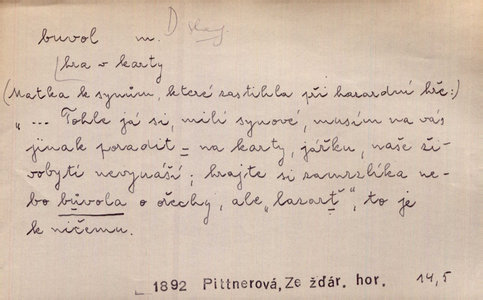 buvol m.
hra v karty
(Matka k synům, které zastihla při hazardní hře:)
"... Tohle já si, milí synové, musím na vás
jinak poradit – na karty, jářku, naše ži-
vobytí nevynáší; hrajte si zamrzlíka ne-
bo bůvola o ořechy, ale „hazart", to je
k ničemu.
1892 Pittnerová, Ze žďár. hor. 14,5